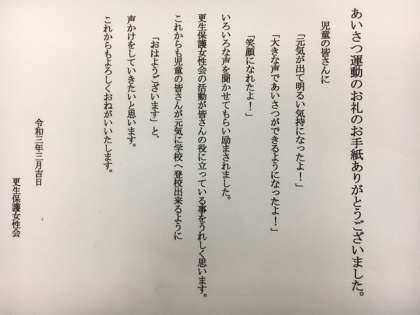 あいさつ運動のお礼のお手紙ありがとうございました。
児童の皆さんに
「元気が出て明るい気持になったよ！」
「大きな声であいさつができるようになったよ！」
「笑顔になれたよ！」
いろいろな声を聞かせてもらい励まされました。
更生保護女性会の活動が皆さんの役に立っている事をうれしく思います。
これからも児童の皆さんが元気に学校へ登校出来るように
「おはようございます」と、
声かけをしていきたいと思います。
これからもよろしくおねがいいたします。
令和三年三月吉日
更生保護女性会